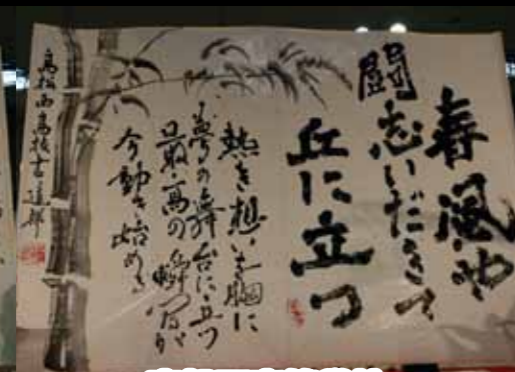 春風や
闘志いだきて
丘に立つ
熱き想いを胸に
夢の舞台に立つ
最高の瞬間が
今動き始める
高松西高校書道部